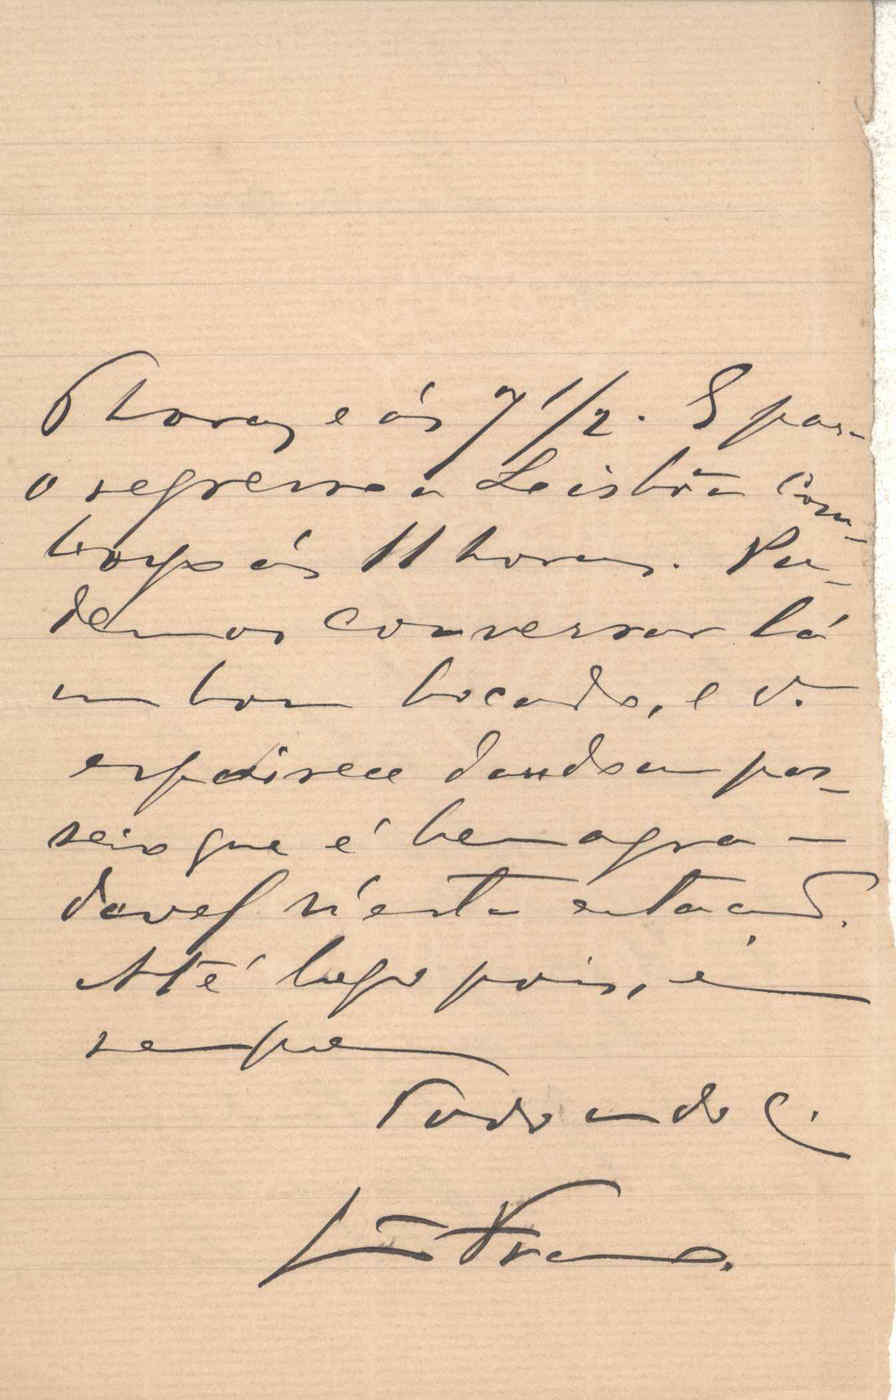 6 horas, e ás 7 1/2. E para
o regresso a Lisbôa com-
boyo ás 11 horas. Po-
demos conversar lá
um bom bocado, e V.
espairece dando um pas-
seio que é bem agra-
davel n'esta estação.
Até logo pois, e
sempre
Todo am do C.